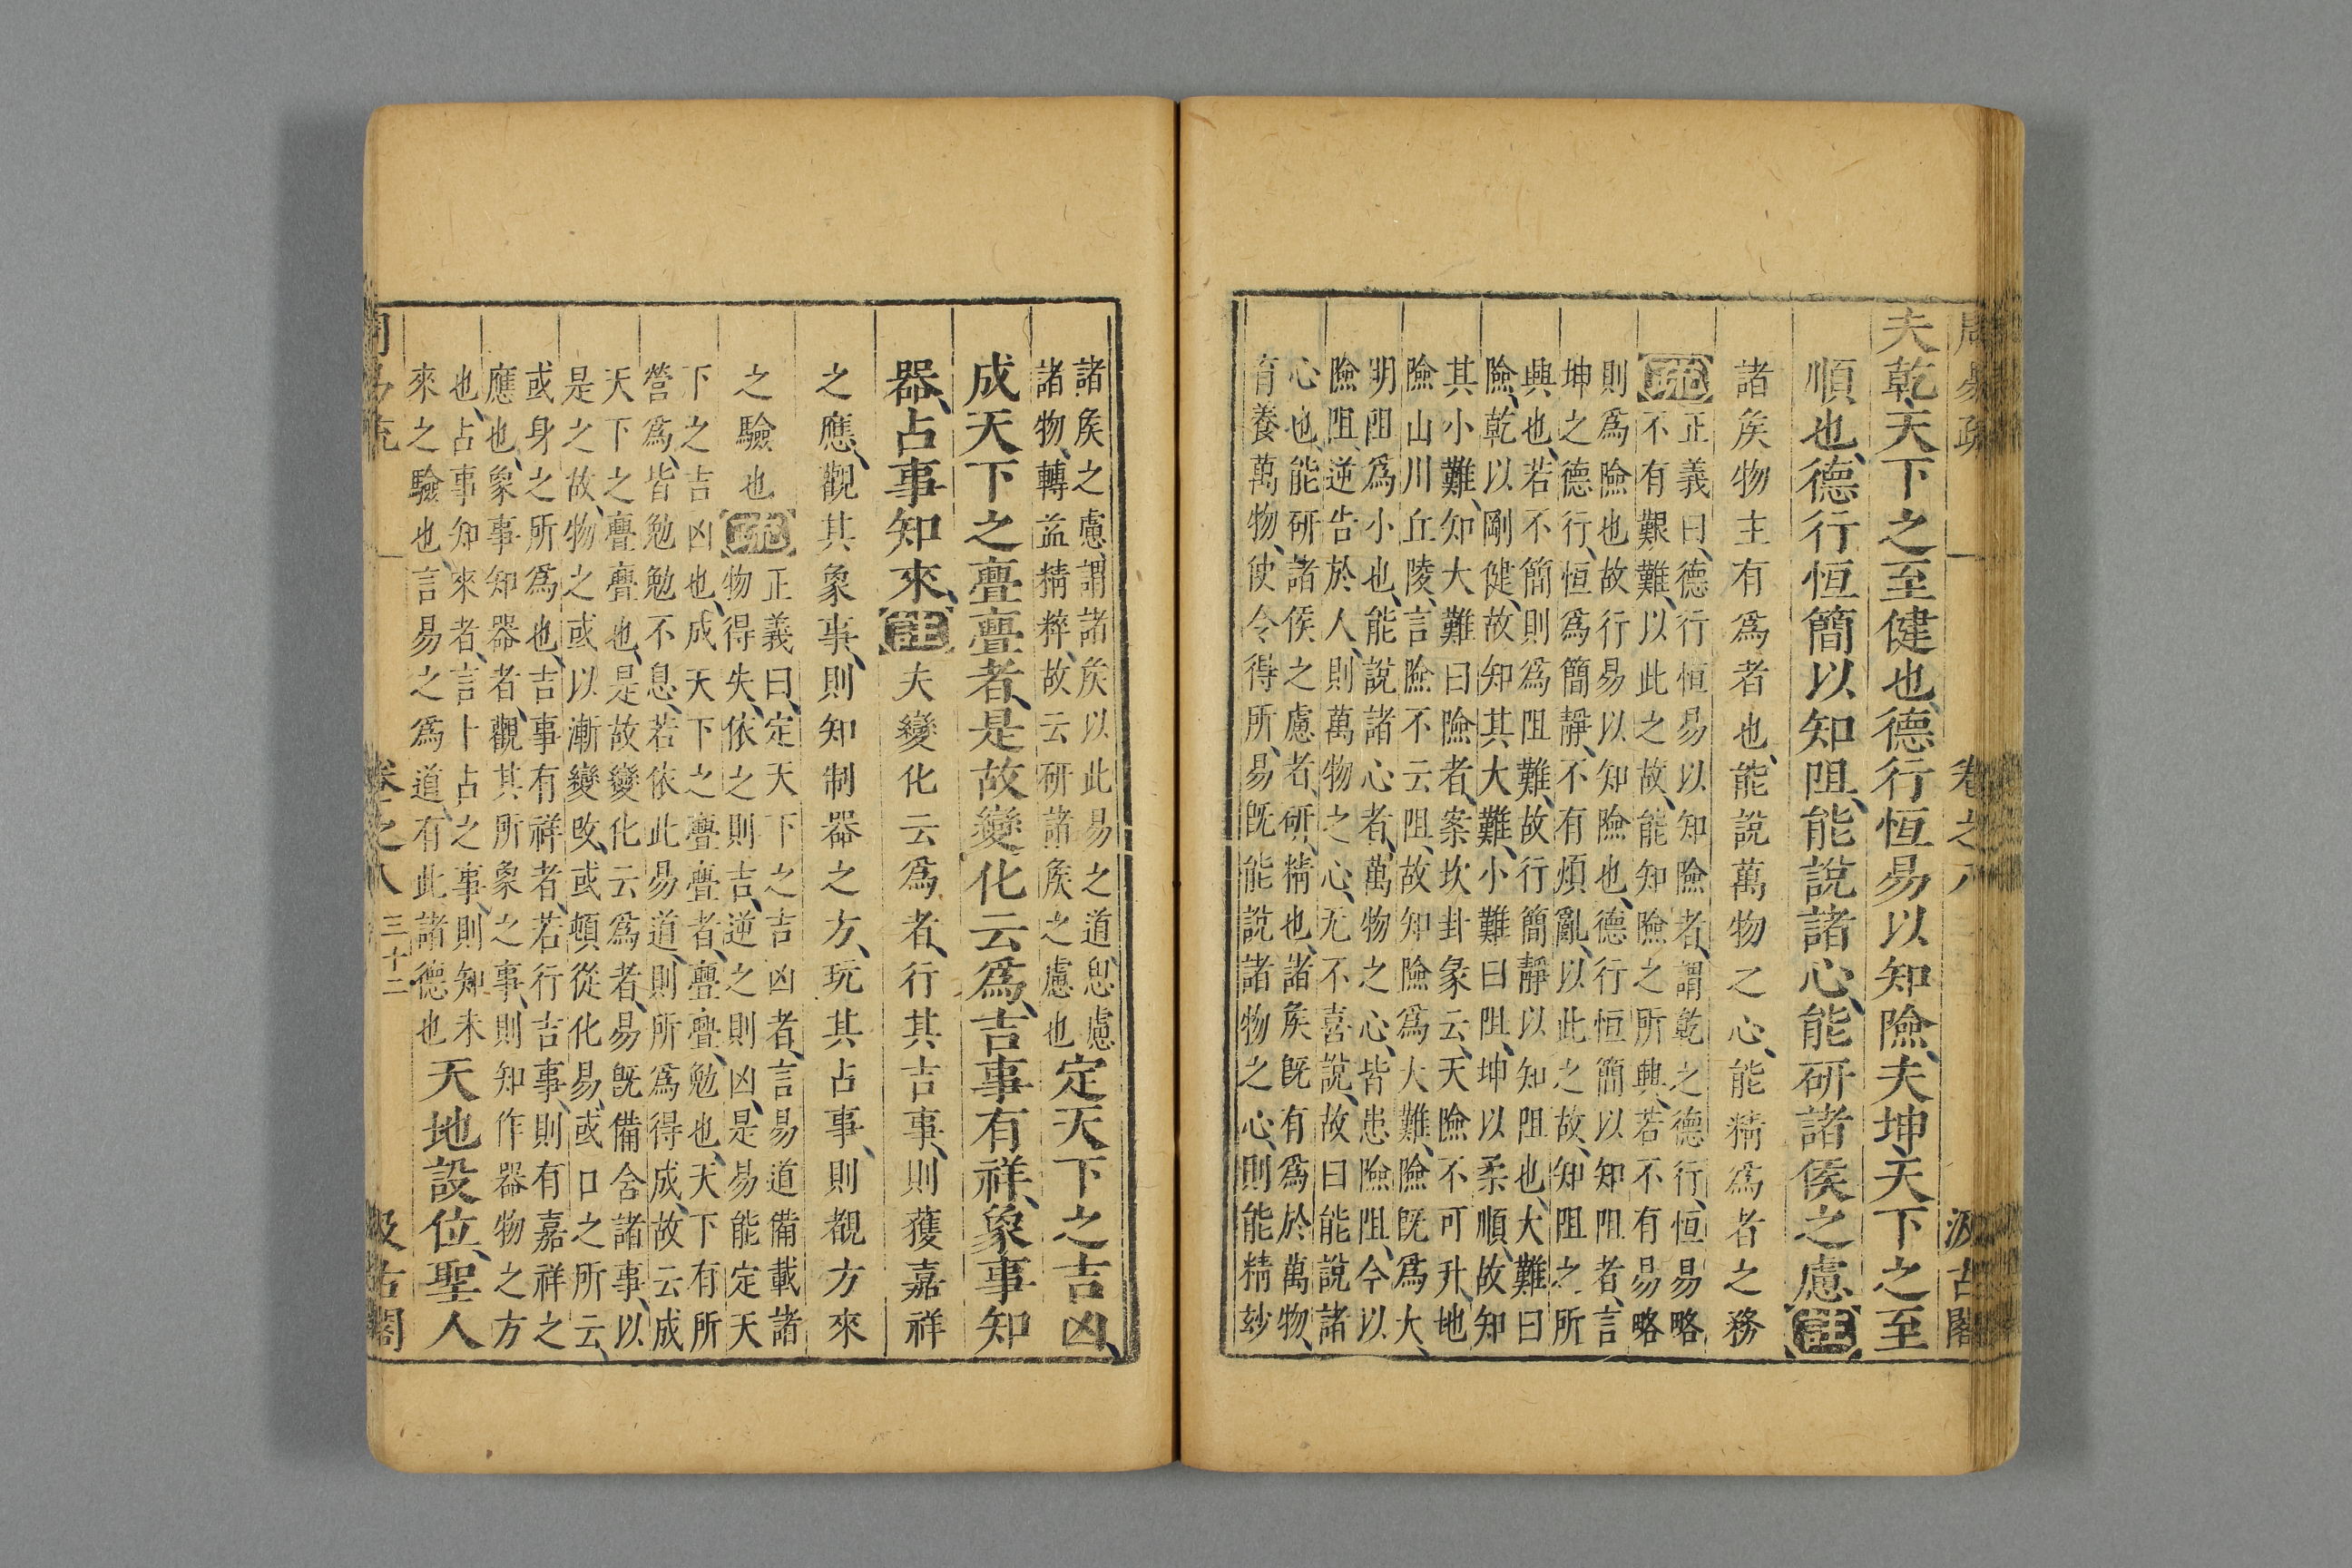 周易疏 卷之八 汲古閣
夫乾、天下之至健也、德行恒易以知險、夫坤、天下之至
順也、德行恒簡以知阻、能說諸心、能研諸侯之慮註
諸矦物主有爲者也、能說萬物之心、能精爲者之務
疏
正義曰、德行恒易以知險者、謂乾之德行、恒易略
不有艱難、以此之故、能知險之所興、若不有易略
則爲險也、故行易以知險也、德行恒簡以知阻者、言
坤之德行、恒爲簡靜、不有煩亂、以此之故、知阻之所
興也、若不簡則爲阻難、故行簡靜以知阻也、大難曰
險、乾以剛健、故知其大難、小難曰阻、坤以柔順、故知
其小難、知大難曰險者、案坎卦彖云、天險不可升、地
險山川丘陵、言險不云阻、故知險爲大難、險旣爲大、
明阻爲小也、能說諸心者、萬物之心、皆患險阻、今以
險阻、逆告於人、則萬物之心、无不喜說、故曰能說諸
心也、能研諸侯之慮者、研、精也、諸矦旣有爲於萬物、
育養萬物、使令得所、易旣能說諸物之心、則能精玅
諸矦之慮、謂諸矦以此易之道、思慮
諸物、轉益精粹、故云研諸矦之慮也
定天下之吉凶、
成天下之亹亹者、是故變化云爲、吉事有祥、象事知
器、占事知來、註夫變化云爲者、行其吉事、則獲嘉祥
之應、觀其象事、則知制器之方、玩其占事、則覩方來
之驗也疏
正義曰、定天下之吉凶者、言易道備載諸
物得失、依之則吉、逆之則凶、是易能定天
下之吉凶也、成天下之亹亹者、亹亹、勉也、天下有所
營爲、皆勉勉不息、若依此易道、則所爲得成、故云成
天下之亹亹也、是故變化云爲者、易旣備含諸事、以
是之故、物之或以漸變改、或頓從化易、或口之所云、
或身之所爲也、吉事有祥者、若行吉事、則有嘉祥之
應也、象事知器者、觀其所象之事、則知作器物之方
也、占事知來者、言卜占之事、則知未
來之驗也、言易之爲道、有此諸德也
天地設位、聖人
周易疏 卷之八 三十二 汲古閣